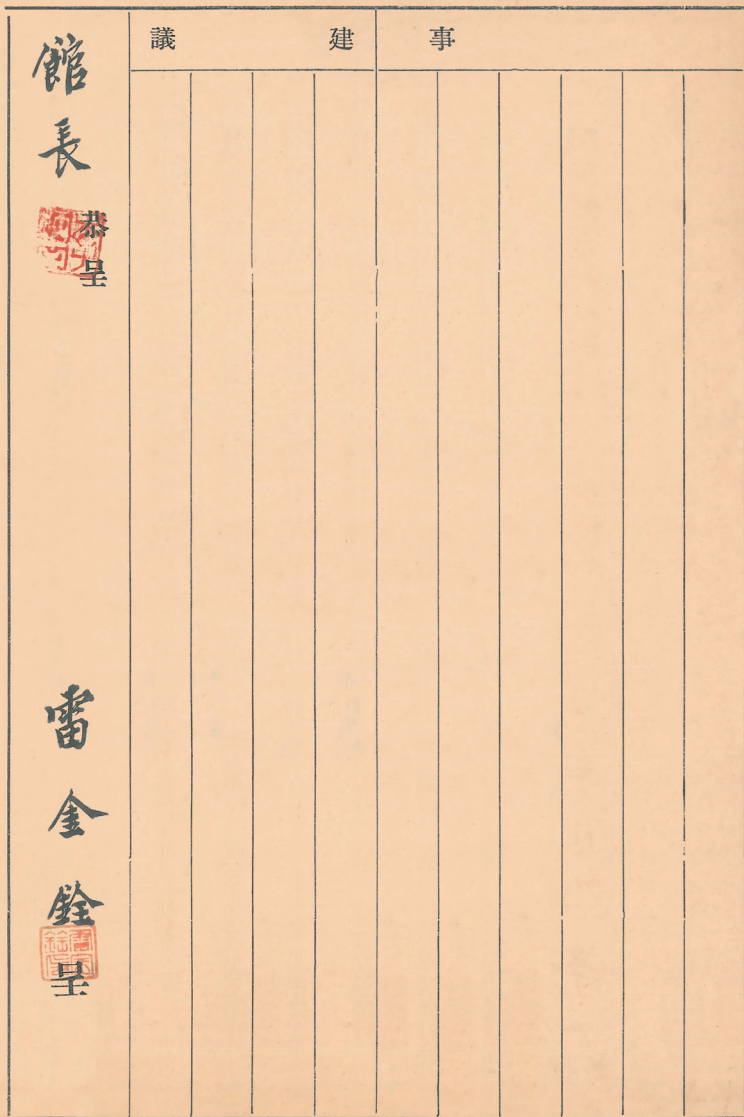 事
建議
館長
恭呈
雷金銓
呈